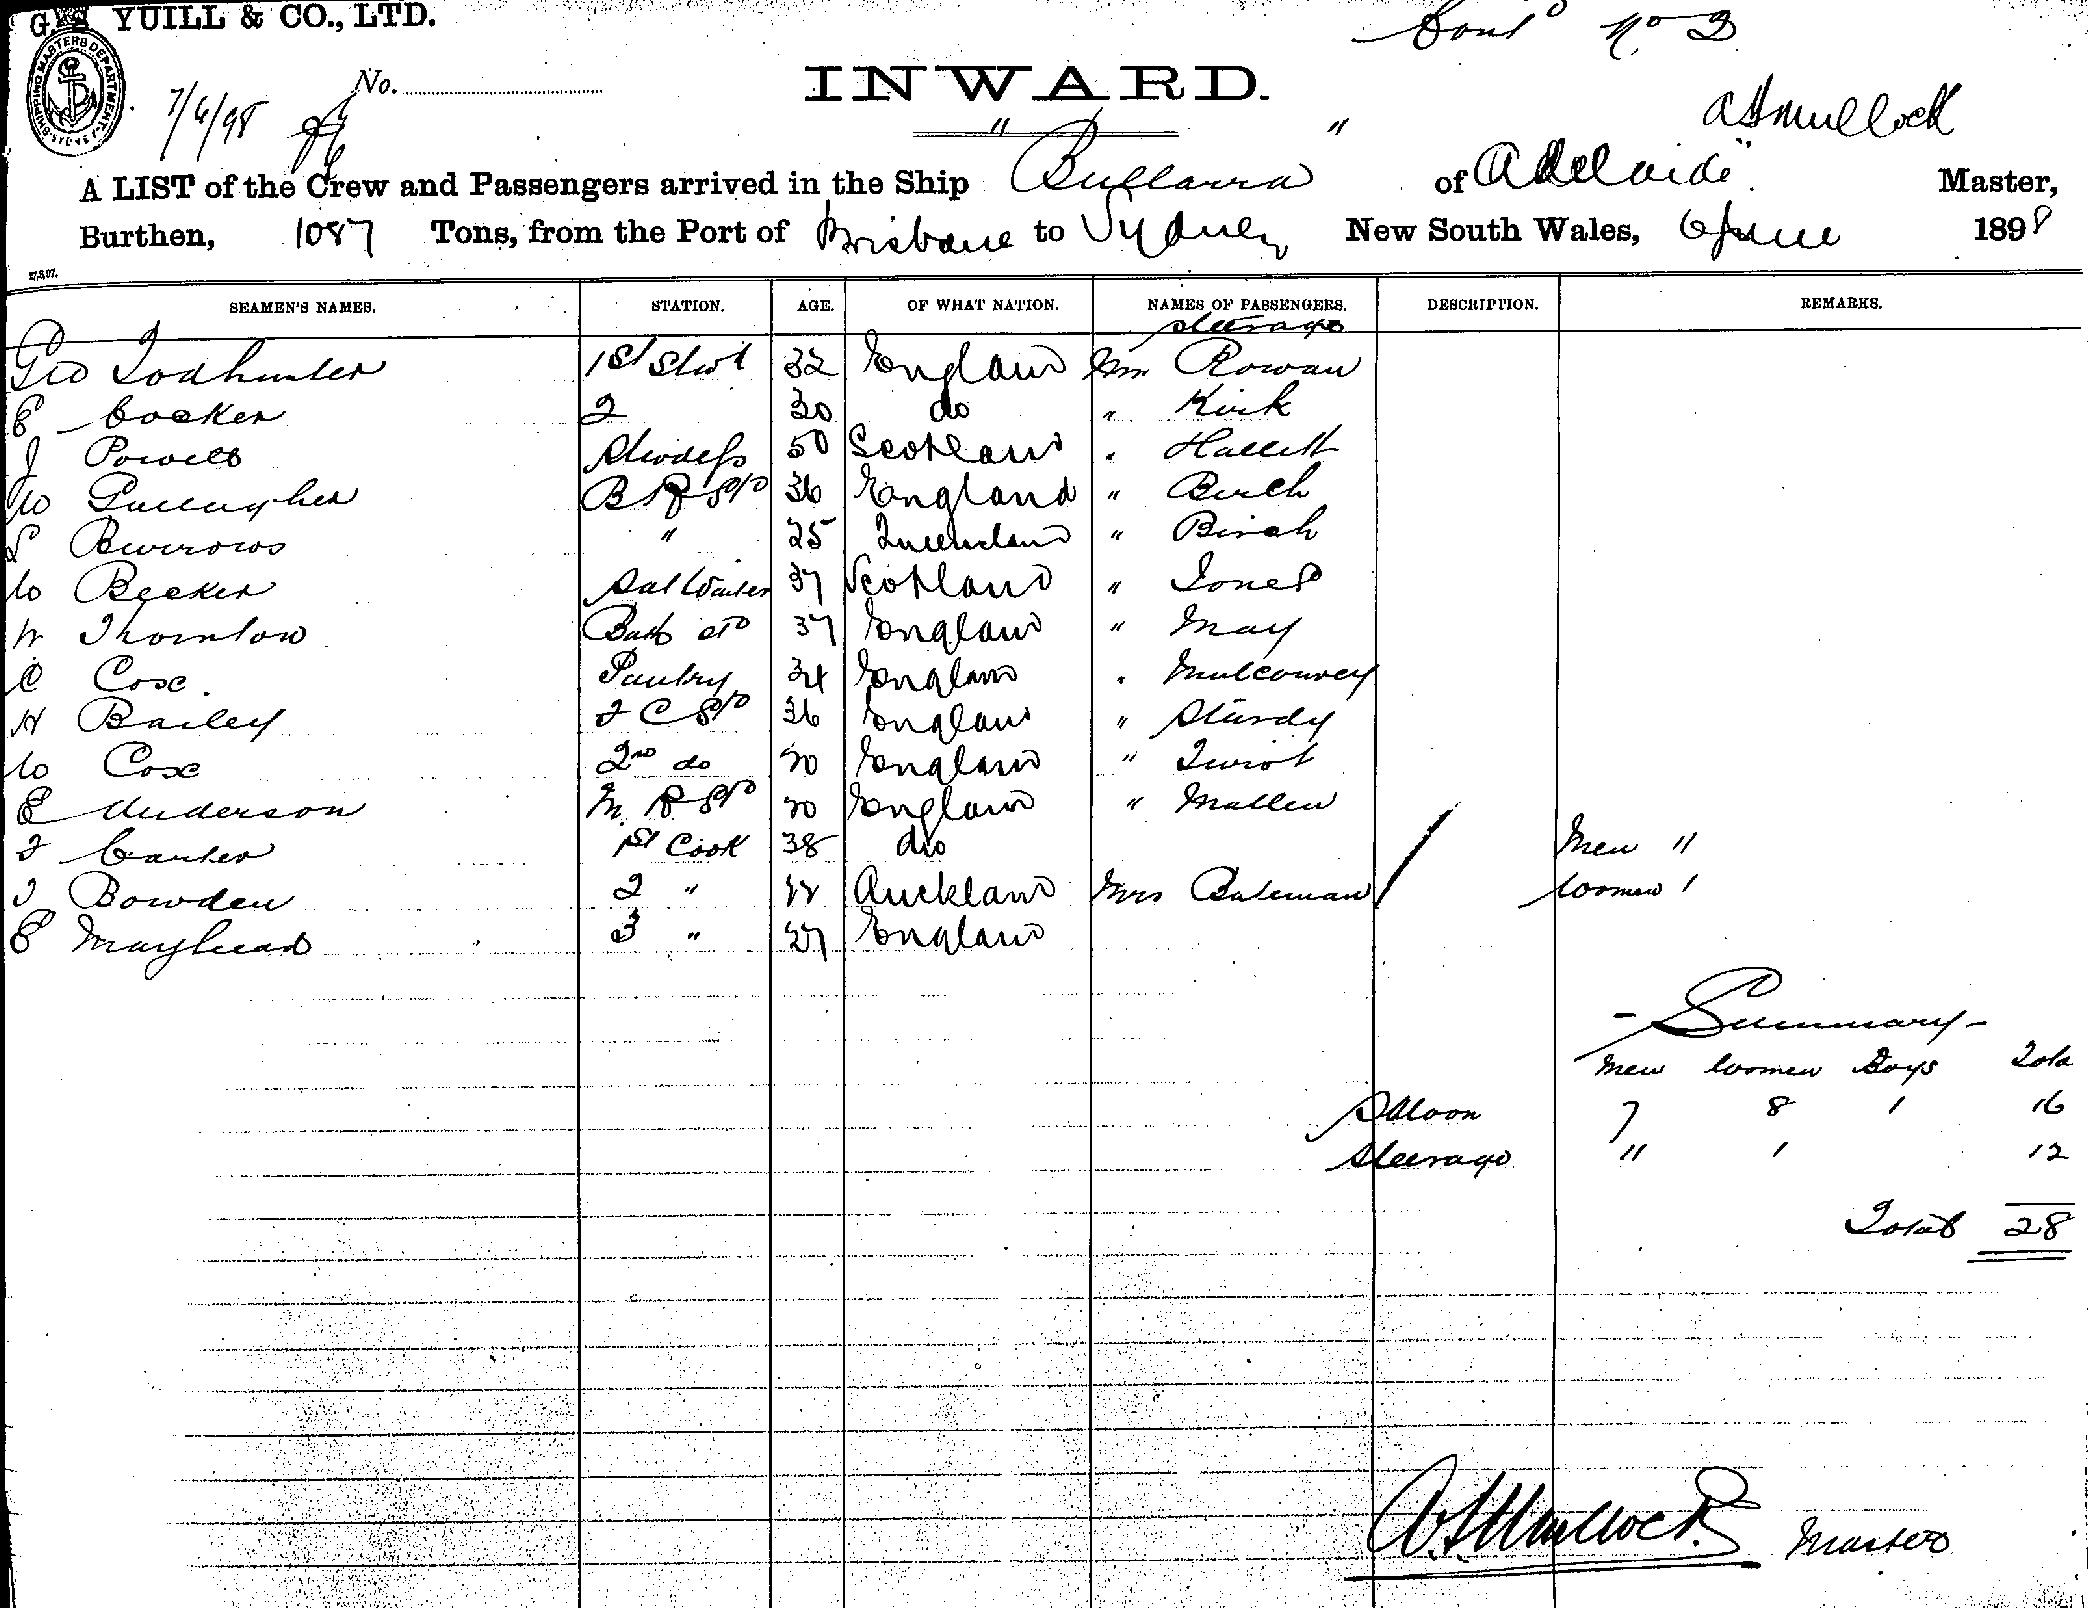 YUILL & CO., LTD.
Cont^d No 2
SHIPPING MASTERS DEPARTMENT
No.
INWARD.
7/6/98
A LIST of the Crew and Passengers arrived in the Ship "Bullarra" of Adelaide A S Mullock Master,
Burthen, 1087 Tons, from the Port of Brisbane to Sydney New South Wales, 6 June 1898
SEAMEN'S NAMES. STATION. AGE. OF WHAT NATION. NAMES OF PASSENGERS. DESCRIPTION. REMARKS.
Steerage
Geo Todhunter 1st Stwd 32 England Mr Rowan
E Cocker 2 30 do " Kirk
J Powell Stwdess 50 Scotland " Hallett
W Gullugher B R Std 36 England " Birch
S Burrows " 25 Queensland " Birch
W Becker Sal Waiter 37 Scotland " Jones
W Thornton Bath Std 37 England " May
C Cox. Pantry 34 England " Mulconvey
H Bailey F C Std 36 England " Sturdy
W Cox 2nd do 20 England "
E Anderson M. R Std 20 England " Mallew
F Carter 1st Cook 38 do Men 11
J Bowden 2 " 22 Auckland Mrs Bateman Women 1
E Mayhead 3 " 27 England
- Summary -
Men Women Boys Total
Saloon 7 8 1 16
Steerage 11 1 12
Total 28
A. S. Mullock. Master